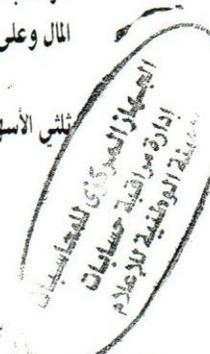 المال وعلى
ثلثي الأسه
الجهاز المركزي للمحاسبات
إدارة مراقبة حسابات
الوطنية للإعلام